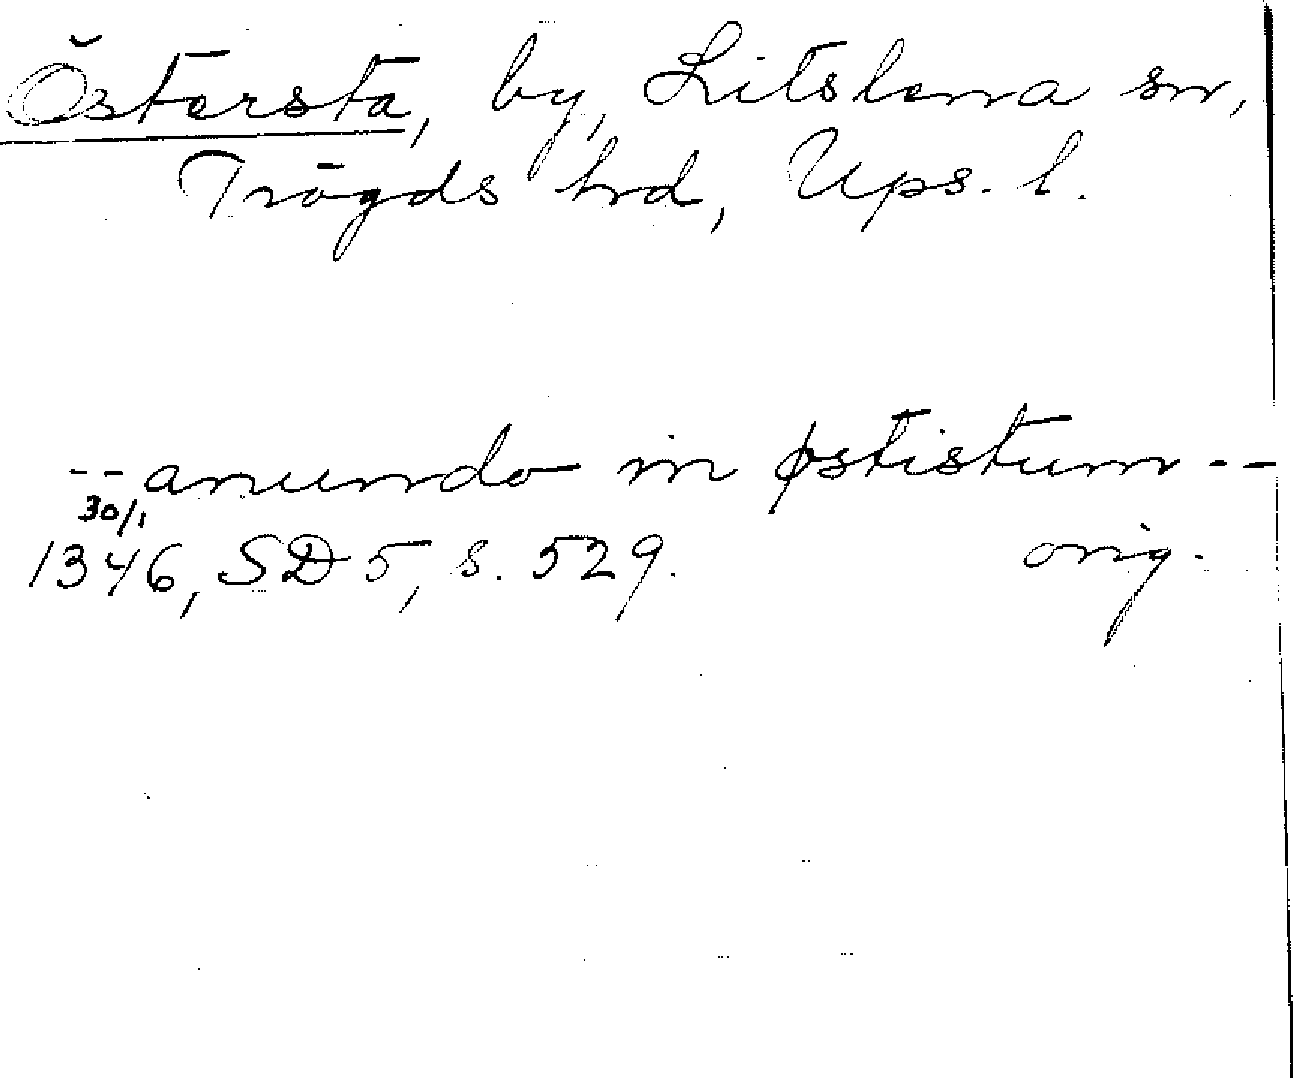 Östersta, by, Litslena sn,
Trögds hrd, Ups. l.
-- anundo in østistum --
30/1
1346, SD 5, s. 529. orig.